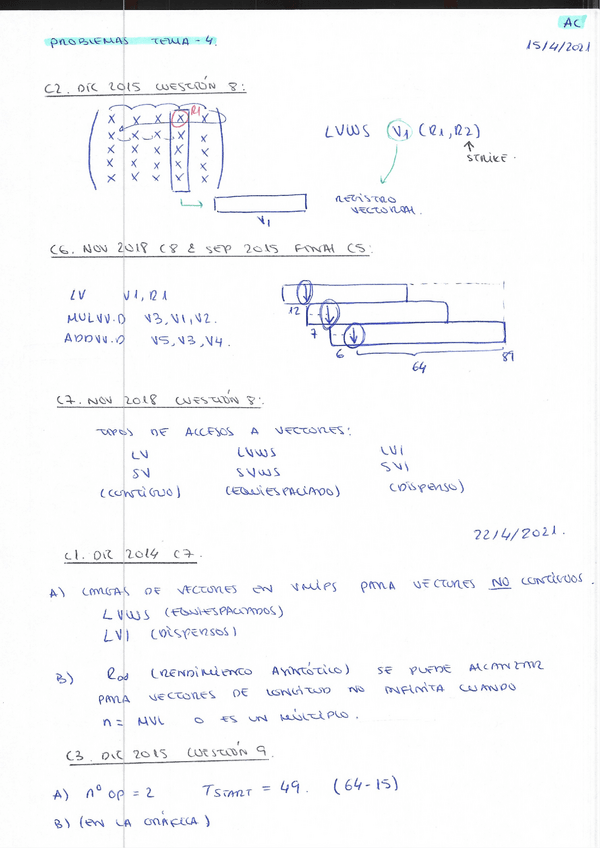 AC
PROBLEMAS TEMA - 4.
15/4/2021
C2. DIC 2015 CUESTIÓN 8:
X X X X X R1
X X X X X
X X X X X
X X X X X
X X X X X
LVWS V1 (R1, R2)
STRIKE.
REGISTRO
VECTORIAL.
V1
C6. NOV 2018 C8 & SEP 2015 FINAL C5:
LV V1, R1
MULVV.D V3, V1, V2.
ADDVV.D V5, V3, V4.
12
7
6
64
89
C7. NOV 2018 CUESTIÓN 8:
TIPOS DE ACCESOS A VECTORES:
LV LVWS LVI
SV SVWS SVI
(CONTIGUO) (EQUIESPACIADO) (DISPERSO)
22/4/2021.
C1. DIC 2014 C7.
A) CARGAS DE VECTORES EN VMIPS PARA VECTORES NO CONTIGUOS.
LVWS (EQUIESPACIADOS)
LVI (DISPERSOS)
B) R∞ (RENDIMIENTO ASINTÓTICO) SE PUEDE ALCANZAR
PARA VECTORES DE LONGITUD NO INFINITA CUANDO
n = MVL O ES UN MÚLTIPLO.
C3. DIC 2015 CUESTIÓN 9.
A) nº OP = 2 TSTART = 49. (64-15)
B) (EN LA GRÁFICA)